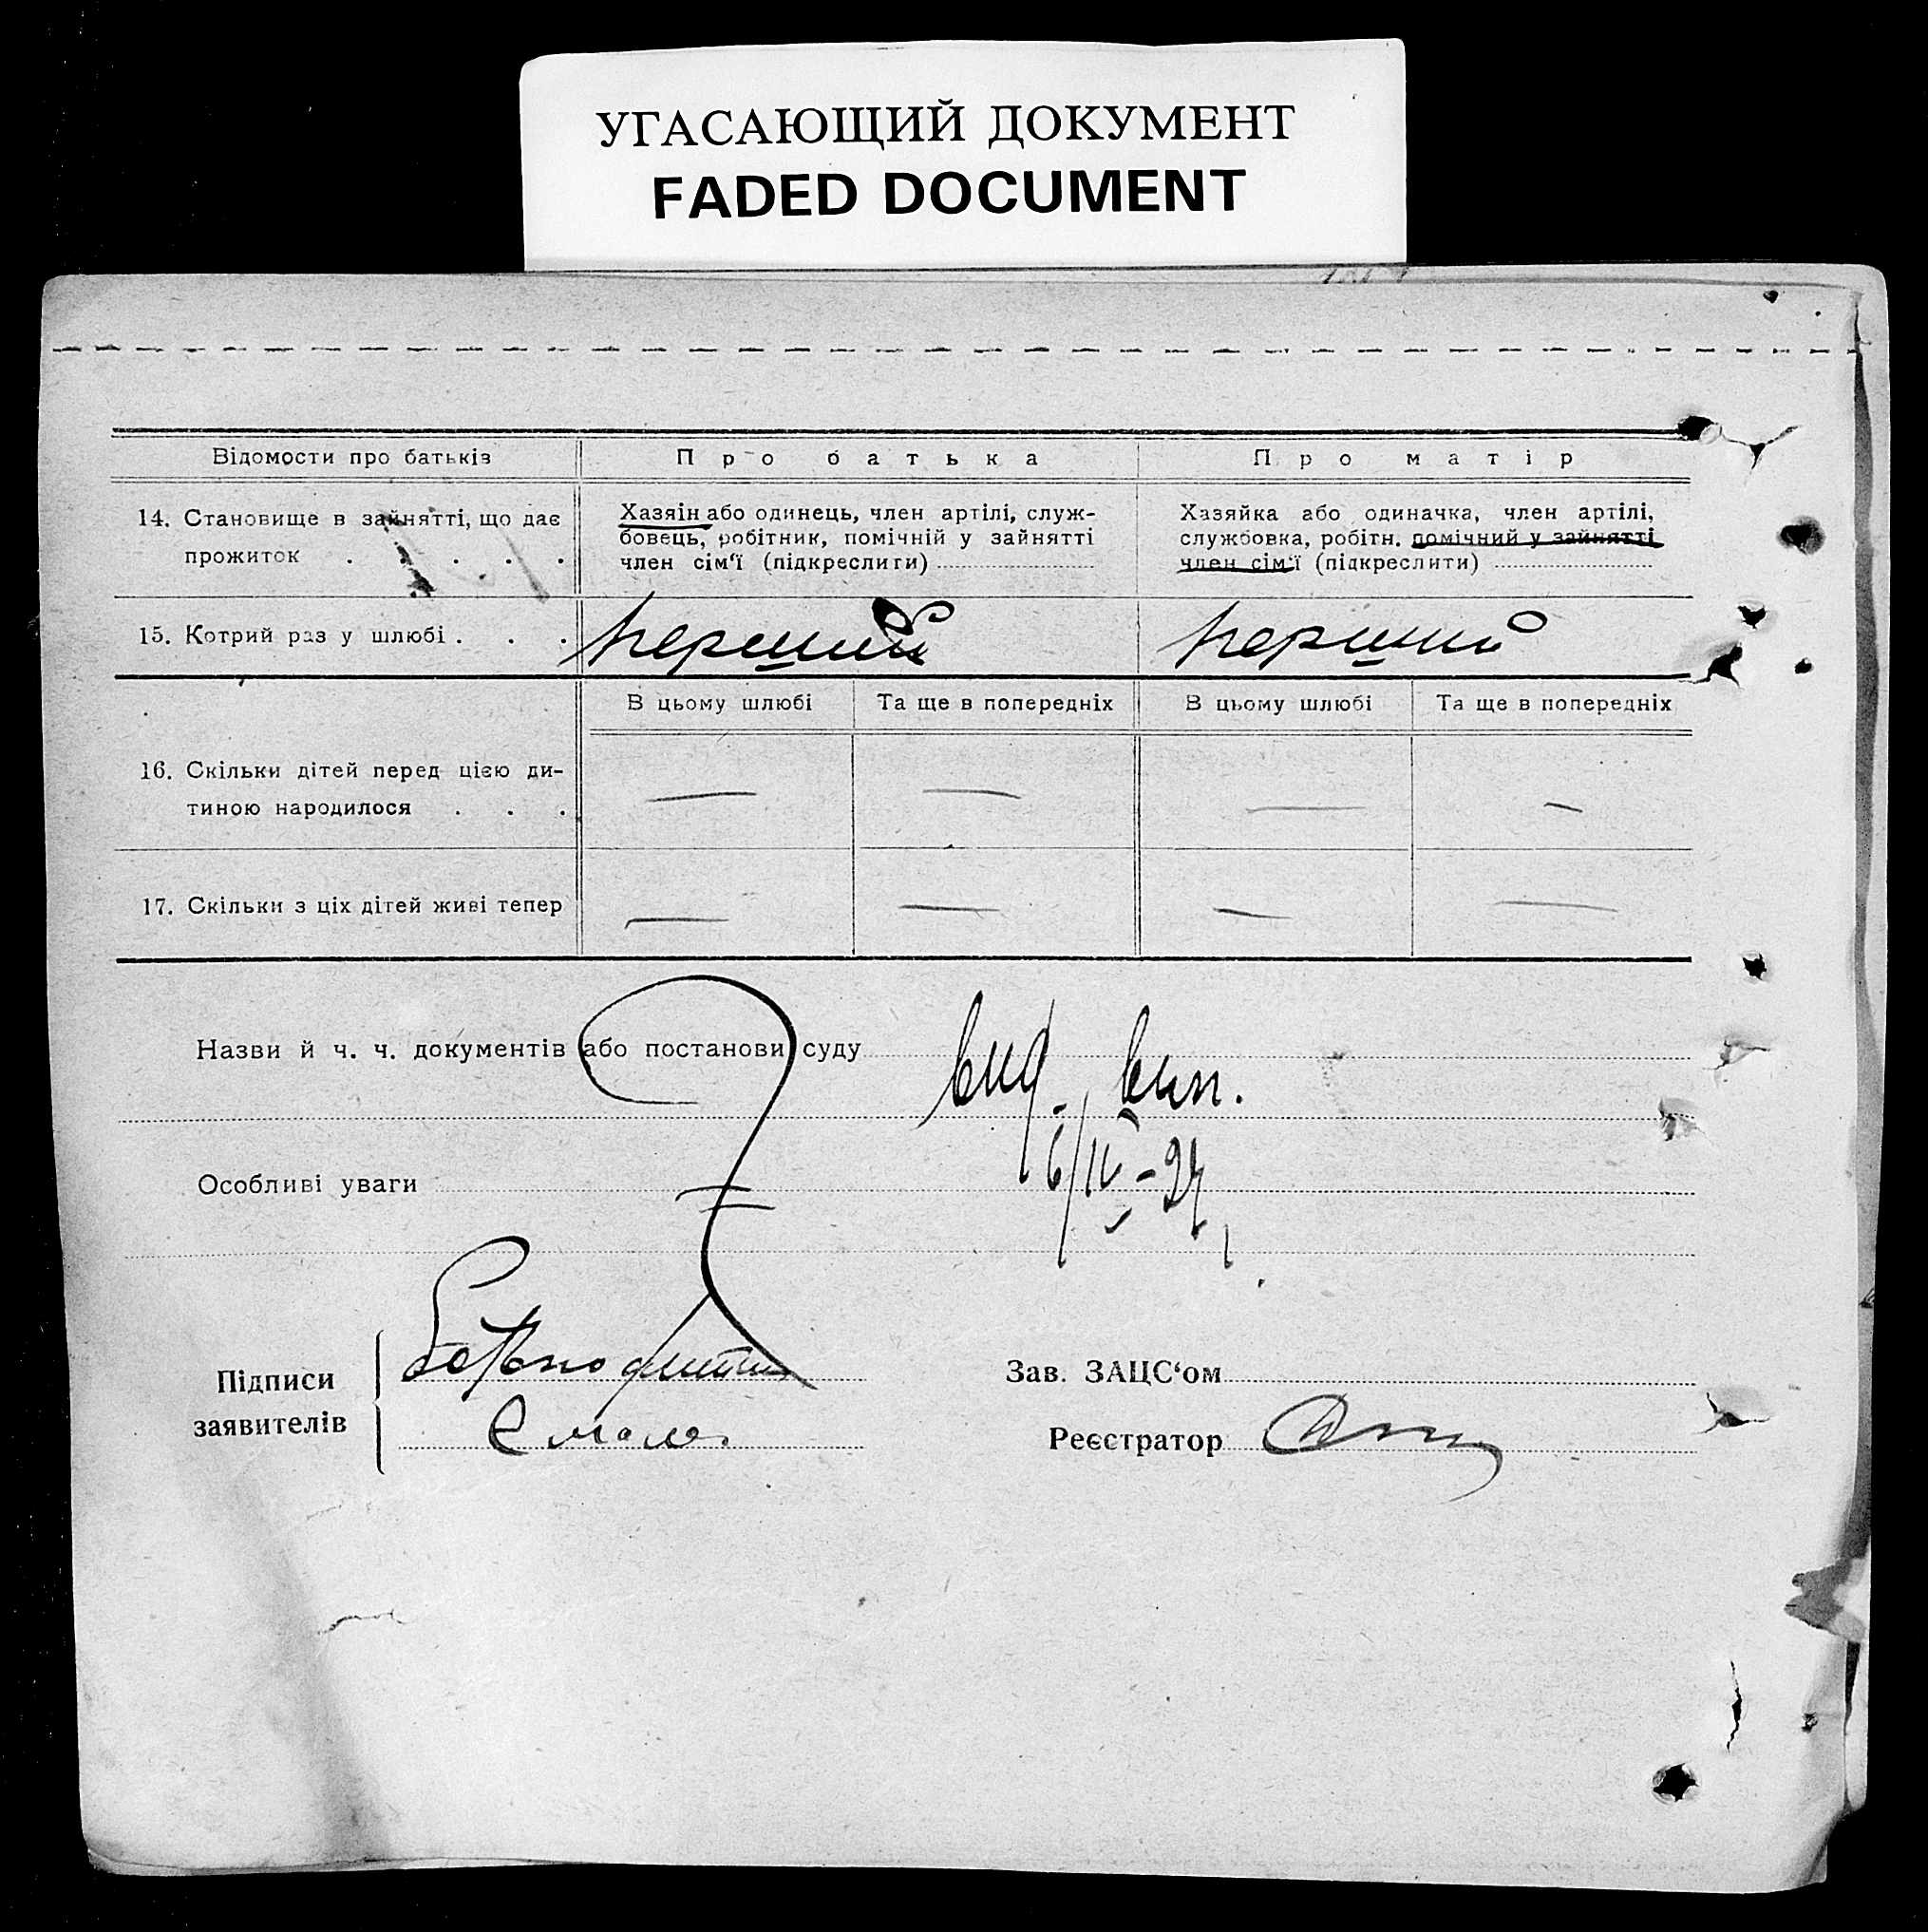 УГАСАЮЩИЙ ДОКУМЕНТ
FADED DOCUMENT
Відомости про батьків
Про батька
Про матір
14. Становище в зайнятті, що дає
прожиток . . . . .
Хазяін або одинець, член артілі, служ-
бовець, робітник, помічній у зайнятті
член сім‘ї (підкреслити)
Хазяйка або одиначка, член артілі,
службовка, робітн. помічний у зайнятті
член сім‘ї (підкреслити)
15. Котрий раз у шлюбі . . .
перший
перший
В цьому шлюбі
Та ще в попередніх
В цьому шлюбі
Та ще в попередніх
16. Скільки дітей перед цією ди-
тиною народилося . . .
— — — —
17. Скільки з ціх дітей живі тепер
— — — —
Назви й ч. ч. документів або постанови суду
вид. вип.
6/IV-27
Особливі уваги
Підписи
заявителів
Зав. ЗАЦС‘ом
Реєстратор